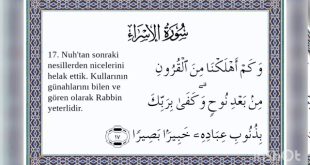 سُورَةُ الإِسْرَاء
17. Nuh'tan sonraki
nesillerden nicelerini
helak ettik. Kullarının
günahlarını bilen ve
gören olarak Rabbin
yeterlidir.
وَكَمْ أَهْلَكْنَا مِنَ الْقُرُونِ
مِنْ بَعْدِ نُوحٍ ۗ وَكَفَىٰ بِرَبِّكَ
بِذُنُوبِ عِبَادِهِ خَبِيرًا بَصِيرًا ﴿١٧﴾